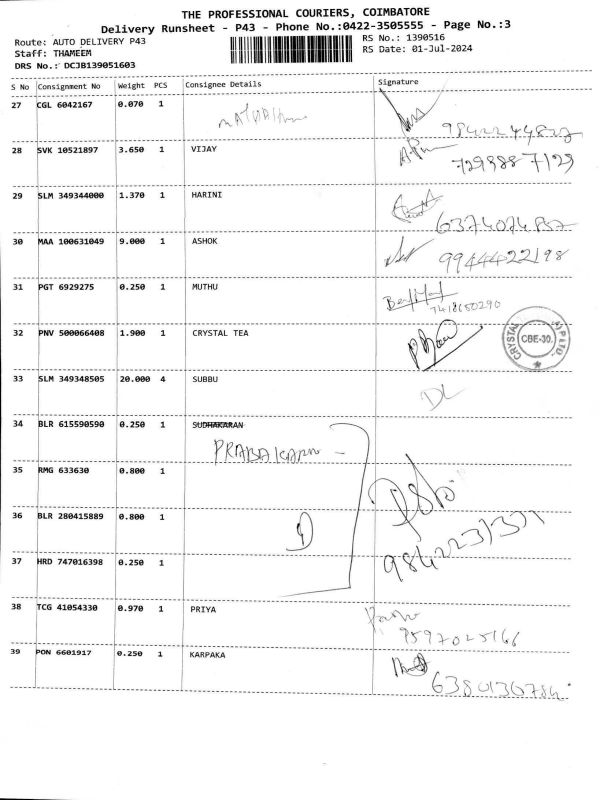 THE PROFESSIONAL COURIERS, COIMBATORE
Delivery Runsheet - P43 - Phone No.:0422-3505555 - Page No.:3
Route: AUTO DELIVERY P43 RS No.: 1390516
Staff: THAMEEM RS Date: 01-Jul-2024
DRS No.: DCJB139051603
S No Consignment No Weight PCS Consignee Details Signature
27 CGL 6042167 0.070 1
28 SVK 10521897 3.650 1 VIJAY 7299887129
29 SLM 349344000 1.370 1 HARINI
6374074857
30 MAA 100631049 9.000 1 ASHOK 9944422198
31 PGT 6929275 0.250 1 MUTHU
7418650290
32 PNV 500066408 1.900 1 CRYSTAL TEA CRYSTAL CBE-30. (P) LTD.
33 SLM 349348505 20.000 4 SUBBU DL
34 BLR 615590590 0.250 1 SUDHAKARAN
PRABAKARN
35 RMG 633630 0.800 1
36 BLR 280415889 0.800 1
37 HRD 747016398 0.250 1
38 TCG 41054330 0.970 1 PRIYA
9597025166
39 PON 6601917 0.250 1 KARPAKA
6380130784